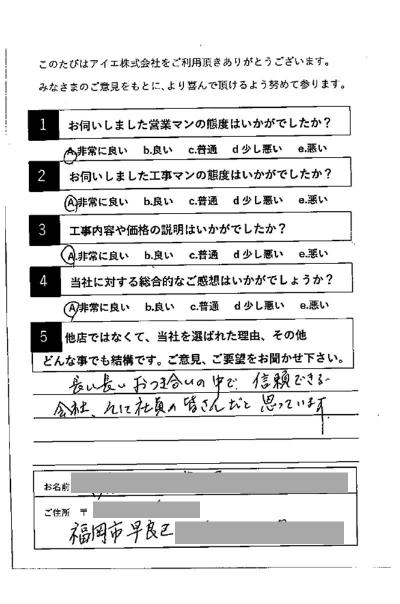 このたびはアイエ株式会社をご利用頂きありがとうございます。
みなさまのご意見をもとに、より喜んで頂けるよう努めて参ります。
1 お伺いしました営業マンの態度はいかがでしたか？
A.非常に良い b.良い c.普通 d 少し悪い e.悪い
2 お伺いしました工事マンの態度はいかがでしたか？
A.非常に良い b.良い c.普通 d 少し悪い e.悪い
3 工事内容や価格の説明はいかがでしたか？
A.非常に良い b.良い c.普通 d 少し悪い e.悪い
4 当社に対する総合的なご感想はいかがでしょうか？
A.非常に良い b.良い c.普通 d 少し悪い e.悪い
5 他店ではなくて、当社を選ばれた理由、その他
どんな事でも結構です。ご意見、ご要望をお聞かせ下さい。
長い長いおつき合いの中で 信頼できる
会社、 社員の皆さんだと思っています
お名前
ご住所 〒
福岡市早良区